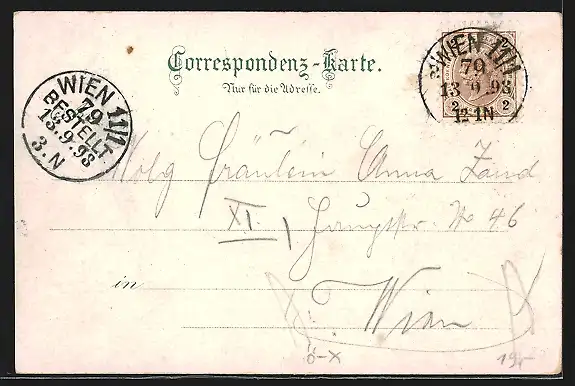 Correspondenz-Karte.
Nur für die Adresse.
WIEN 11/1
79
13 9 98
12-1N
2 2
WIEN 11/1
79
BESTELLT
13.9.98
3.N
Wolg Fräulein Anna Zand
XI., Hauptstr. No 46
in Wien
ö-x
19,-